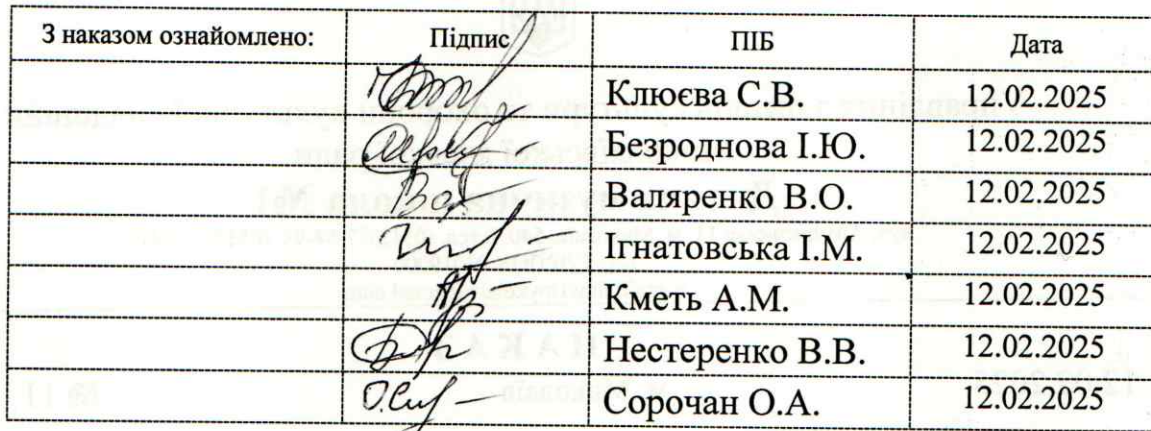 З наказом ознайомлено: Підпис ПІБ Дата
Клюєва С.В. 12.02.2025
Безроднова І.Ю. 12.02.2025
Валяренко В.О. 12.02.2025
Ігнатовська І.М. 12.02.2025
Кметь А.М. 12.02.2025
Нестеренко В.В. 12.02.2025
Сорочан О.А. 12.02.2025